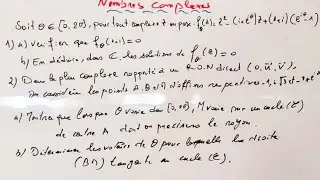 Nombres Complexes
Soit θ ∈ [0, 2π[, pour tout complexe z on pose : f_θ(z) = z² - (i+e^{iθ})z + (1+i)(e^{iθ} - 1)
1) a) Vérifier que f_θ(1+i) = 0
b) En déduire, dans ℂ, les solutions de f_θ(z) = 0
2) Dans le plan complexe rapporté à un R.O.N direct (O, u, v),
on considère les points A, B et M d'affixes respectives -1, i√3 et -1+e^{iθ}
a) Montrer que lorsque θ varie dans [0, 2π[, M varie sur un cercle (C)
de centre A dont on précisera le rayon
b) Déterminer les valeurs de θ pour lesquelles la droite
(BM) tangente au cercle (C).